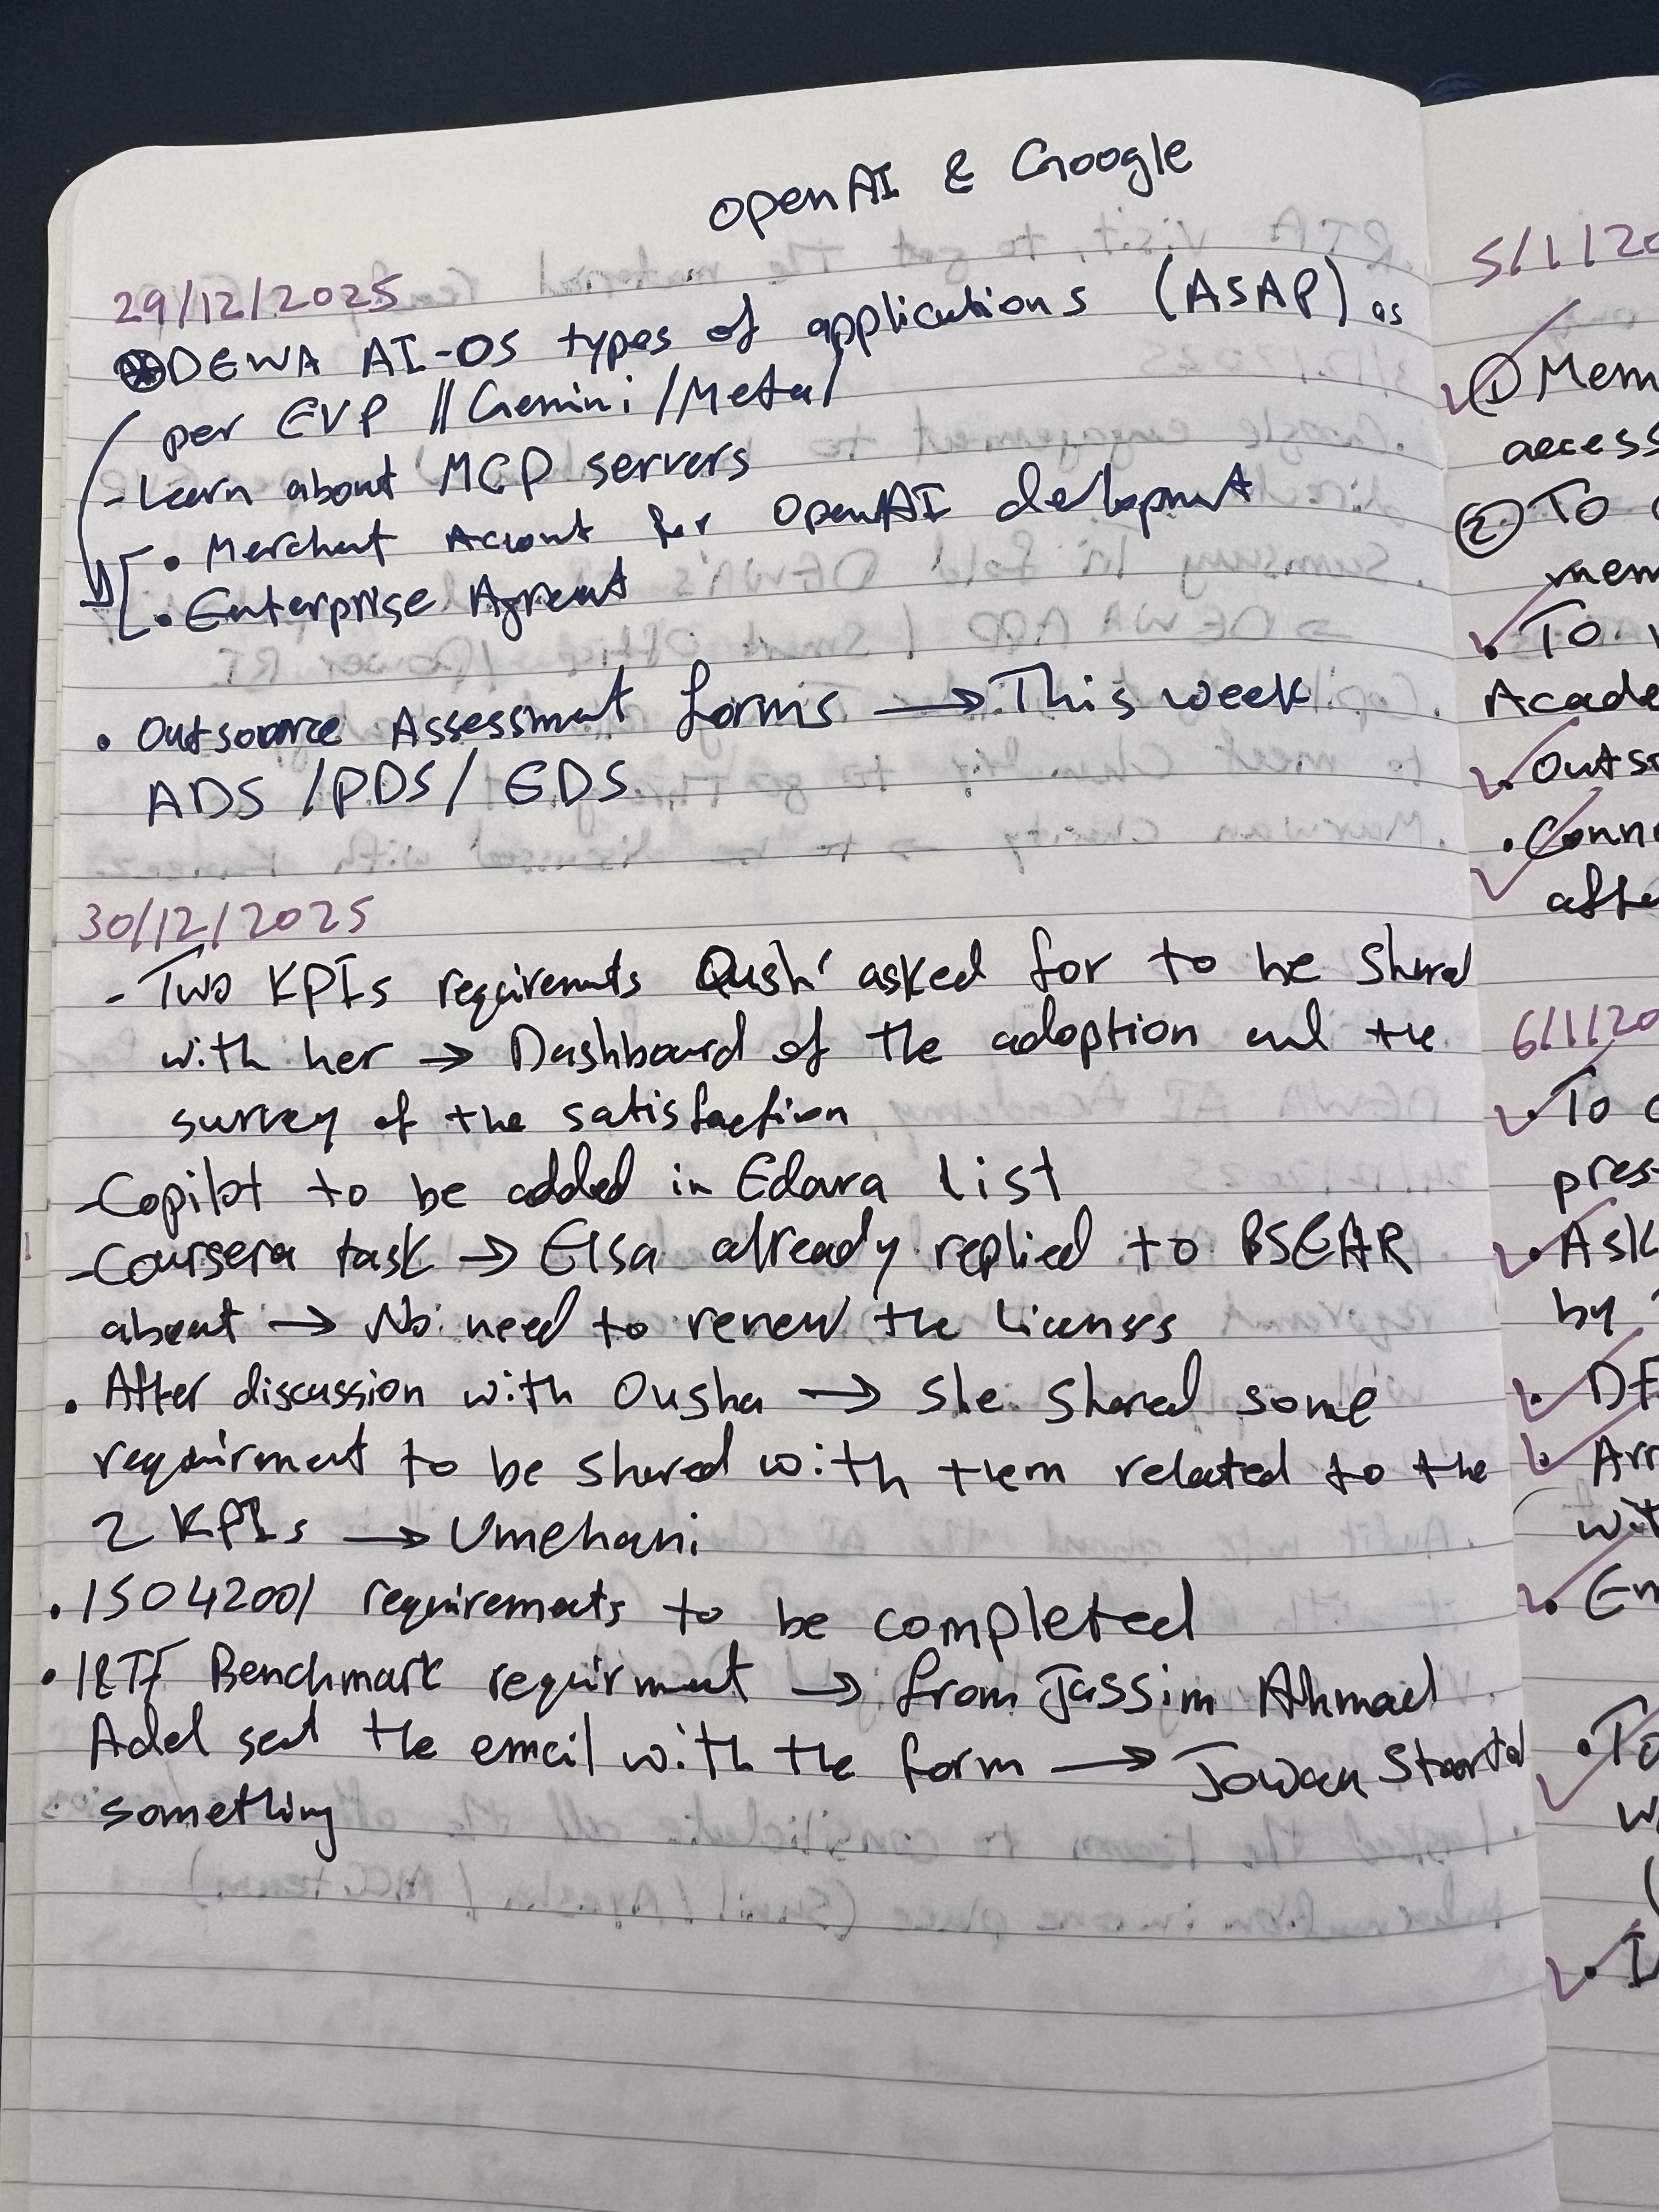 OpenAI & Google
29/12/2025
DEWA AI-OS types of applications (ASAP) as
per EVP // Gemini / Meta /
- Learn about MCP servers
• Merchant Account for OpenAI
• Enterprise
• Outsource Assessment forms → This week
ADS / PDS / EDS
30/12/2025
- Two KPIs requirements asked for to be shared
with her → Dashboard of the adoption and the
survey of the satisfaction
- Copilot to be added in Edara list
- Coursera task → Elsa already replied to BSEAR
about → No need to renew the licenses
• After discussion with Ousha → she shared some
requirment to be shared with them related to the
2 KPIs → Umehani
• ISO 42001 requirements to be completed
• Benchmark requirment → from Jassim Ahmad
Adel sent the email with the form → Jowan
something
5/1/20
① Mem
access
② To
mem
• To
Acade
• Outso
• Conn
afte
6/1/20
• To
pres
• Ask
by
•
• Arr
wit
• Em
• To